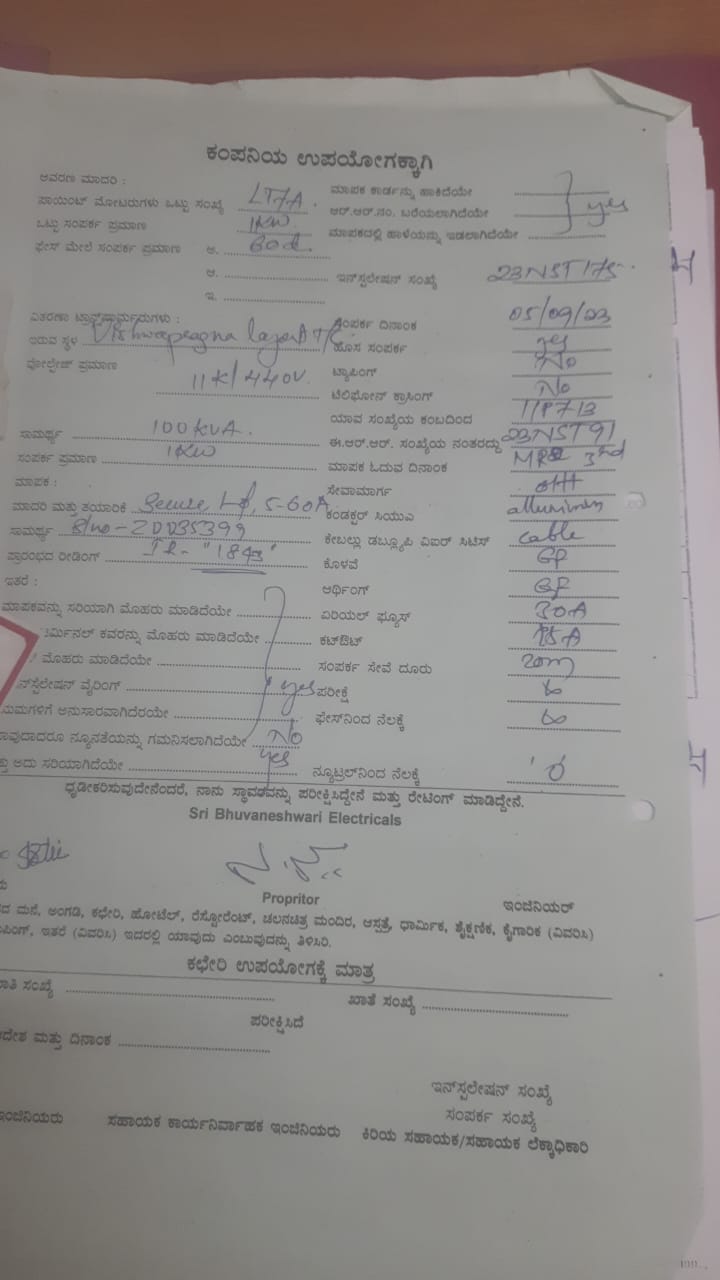 ಕಂಪನಿಯ ಉಪಯೋಗಕ್ಕಾಗಿ
ಆವರಣ ಮಾದರಿ :
ಮಾಪಕ ಕಾರ್ಡನ್ನು ಹಾಕಿದೆಯೇ
ಪಾಯಿಂಟ್ ಮೋಟರುಗಳು ಒಟ್ಟು ಸಂಖ್ಯೆ LT7A.
ಆರ್.ಆರ್.ನಂ. ಬರೆಯಲಾಗಿದೆಯೇ yes
ಒಟ್ಟು ಸಂಪರ್ಕ ಪ್ರಮಾಣ 1KW
ಮಾಪಕದಲ್ಲಿ ಹಾಳೆಯನ್ನು ಇಡಲಾಗಿದೆಯೇ
ಫೇಸ್ ಮೇಲೆ ಸಂಪರ್ಕ ಪ್ರಮಾಣ ಅ.
ಆ.
ಇನ್‌ಸ್ಟಲೇಷನ್ ಸಂಖ್ಯೆ 23NST175
ಇ.
ವಿತರಣಾ ಟ್ರಾನ್ಸ್‌ಫಾರ್ಮರುಗಳು :
ಸಂಪರ್ಕ ದಿನಾಂಕ 05/09/23
ಇರುವ ಸ್ಥಳ Vishwapragna layout T/C
ಹೊಸ ಸಂಪರ್ಕ yes
ವೋಲ್ಟೇಜ್ ಪ್ರಮಾಣ 11K/440V.
ಟ್ಯಾಪಿಂಗ್ No
ಟೆಲಿಫೋನ್ ಕ್ರಾಸಿಂಗ್ No
ಯಾವ ಸಂಖ್ಯೆಯ ಕಂಬದಿಂದ
ಸಾಮರ್ಥ್ಯ 100KVA.
ಈ.ಆರ್.ಆರ್. ಸಂಖ್ಯೆಯ ನಂತರದ್ದು 23NST91
ಸಂಪರ್ಕ ಪ್ರಮಾಣ 1KW
ಮಾಪಕ ಓದುವ ದಿನಾಂಕ 3rd
ಮಾಪಕ :
ಸೇವಾಮಾರ್ಗ OH
ಮಾದರಿ ಮತ್ತು ತಯಾರಿಕೆ Secure 1φ, 5-60A
ಕಂಡಕ್ಟರ್ ಸಿಯುಎ alluminium
ಸಾಮರ್ಥ್ಯ S/no-20035399
ಕೇಬಲ್ಲು ಡಬ್ಲ್ಯೂಪಿ ವಿಐರ್ ಸಿಟಿಸ್ cable
ಪ್ರಾರಂಭದ ರೀಡಿಂಗ್
ಕೊಳವೆ GP
ಇತರೆ :
ಅರ್ಥಿಂಗ್
ಮಾಪಕವನ್ನು ಸರಿಯಾಗಿ ಮೊಹರು ಮಾಡಿದೆಯೇ
ಏರಿಯಲ್ ಫ್ಯೂಸ್ 30A
ರ್ಮಿನಲ್ ಕವರನ್ನು ಮೊಹರು ಮಾಡಿದೆಯೇ
ಕಟ್‌ಔಟ್ 15A
ಮೊಹರು ಮಾಡಿದೆಯೇ
ಸಂಪರ್ಕ ಸೇವೆ ದೂರು 20m
ನ್‌ಸ್ಟಲೇಷನ್ ವೈರಿಂಗ್ yes
ಪರೀಕ್ಷೆ ∞
ಯಮಗಳಿಗೆ ಅನುಸಾರವಾಗಿದೆರಯೇ
ಫೇಸ್‌ನಿಂದ ನೆಲಕ್ಕೆ ∞
ಾವುದಾದರೂ ನ್ಯೂನತೆಯನ್ನು ಗಮನಿಸಲಾಗಿದೆಯೇ No
ತ್ತು ಅದು ಸರಿಯಾಗಿದೆಯೇ yes
ನ್ಯೂಟ್ರಲ್‌ನಿಂದ ನೆಲಕ್ಕೆ
ಧೃಡೀಕರಿಸುವುದೇನೆಂದರೆ, ನಾನು ಸ್ಥಾವಡವನ್ನು ಪರೀಕ್ಷಿಸಿದ್ದೇನೆ ಮತ್ತು ರೇಟಿಂಗ್ ಮಾಡಿದ್ದೇನೆ.
Sri Bhuvaneshwari Electricals
Propritor
ಇಂಜಿನಿಯರ್
ದ ಮನೆ, ಅಂಗಡಿ, ಕಛೇರಿ, ಹೋಟೆಲ್, ರೆಸ್ಟೋರೆಂಟ್, ಚಲನಚಿತ್ರ ಮಂದಿರ, ಆಸ್ಪತ್ರೆ, ಧಾರ್ಮಿಕ, ಶೈಕ್ಷಣಿಕ, ಕೈಗಾರಿಕ (ವಿವರಿಸಿ)
ಪಿಂಗ್, ಇತರೆ (ವಿವರಿಸಿ) ಇದರಲ್ಲಿ ಯಾವುದು ಎಂಬುವುದನ್ನು ತಿಳಿಸಿರಿ.
ಕಛೇರಿ ಉಪಯೋಗಕ್ಕೆ ಮಾತ್ರ
ಾತಿ ಸಂಖ್ಯೆ
ಖಾತೆ ಸಂಖ್ಯೆ
ಪರೀಕ್ಷಿಸಿದೆ
ದೇಶ ಮತ್ತು ದಿನಾಂಕ
ಇನ್‌ಸ್ಟಲೇಷನ್ ಸಂಖ್ಯೆ
ಸಂಪರ್ಕ ಸಂಖ್ಯೆ
ಇಂಜಿನಿಯರು ಸಹಾಯಕ ಕಾರ್ಯನಿರ್ವಾಹಕ ಇಂಜಿನಿಯರು ಕಿರಿಯ ಸಹಾಯಕ/ಸಹಾಯಕ ಲೆಕ್ಕಾಧಿಕಾರಿ